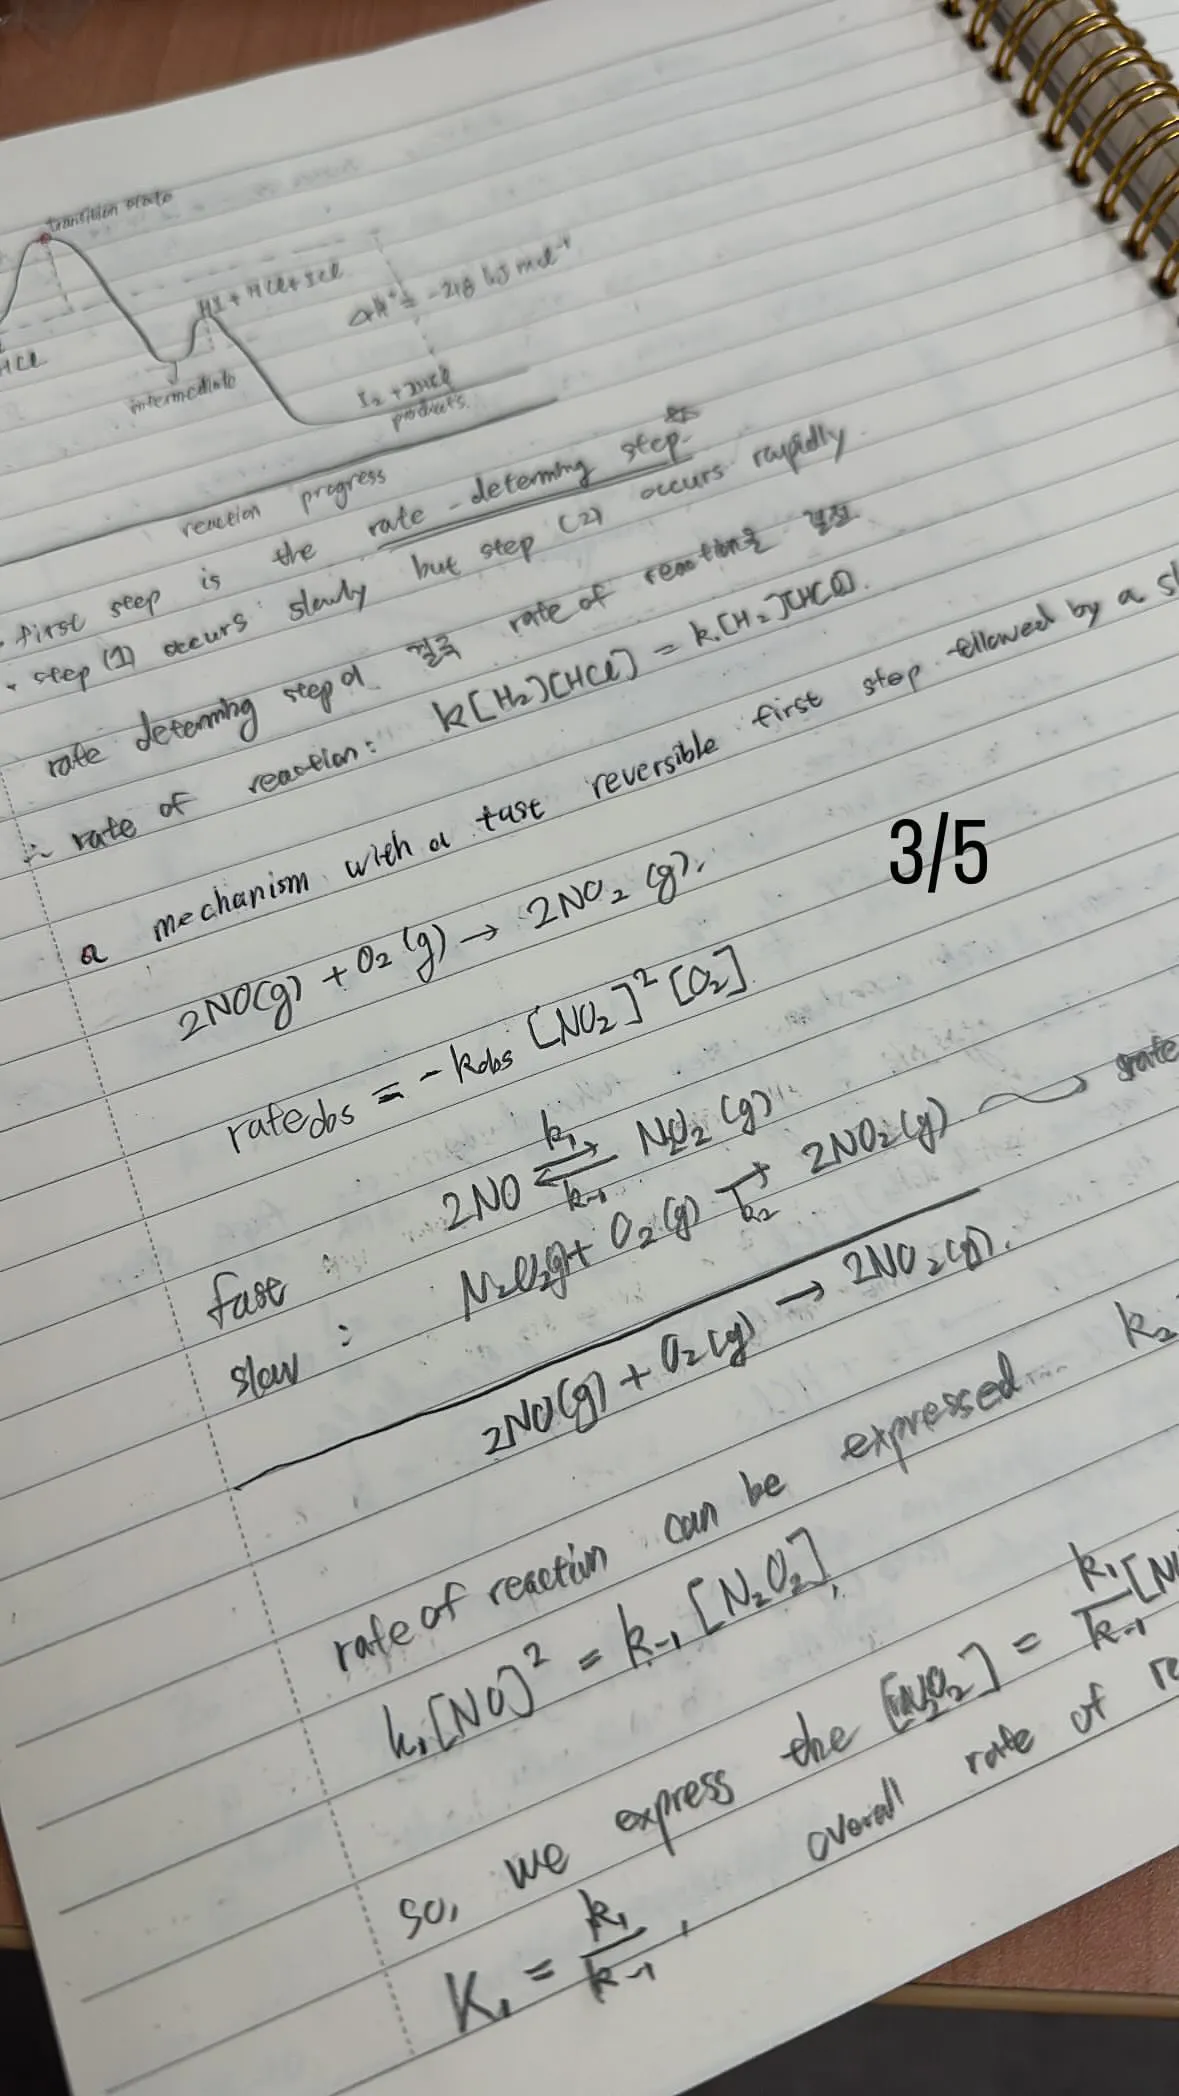 transition state
HI + HCl + ICl
HCl
ΔH° = -218 kJ mol⁻¹
intermediate
I₂ + 2HCl
products.
reaction progress
· first step is the rate-determing step.
· step (1) occurs slowly but step (2) occurs rapidly
rate determing step이 결국 rate of reaction을 결정
∴ rate of reaction: k[H₂][HCl] = k₁[H₂][HCl].
a mechanism with a fast reversible first step followed by a sl
2NO(g) + O₂(g) → 2NO₂(g).
3/5
rate obs = -kobs [NO₂]² [O₂]
fast : 2NO ⇌ N₂O₂(g)
k₁
k₋₁
slow : N₂O₂(g) + O₂(g) → 2NO₂(g)
k₂
rate
2NO(g) + O₂(g) → 2NO₂(g).
rate of reaction can be expressed k₂
k₁[NO]² = k₋₁[N₂O₂],
so, we express the [N₂O₂] = k₁/k₋₁ [N
K₁ = k₁/k₋₁, overall rate of re